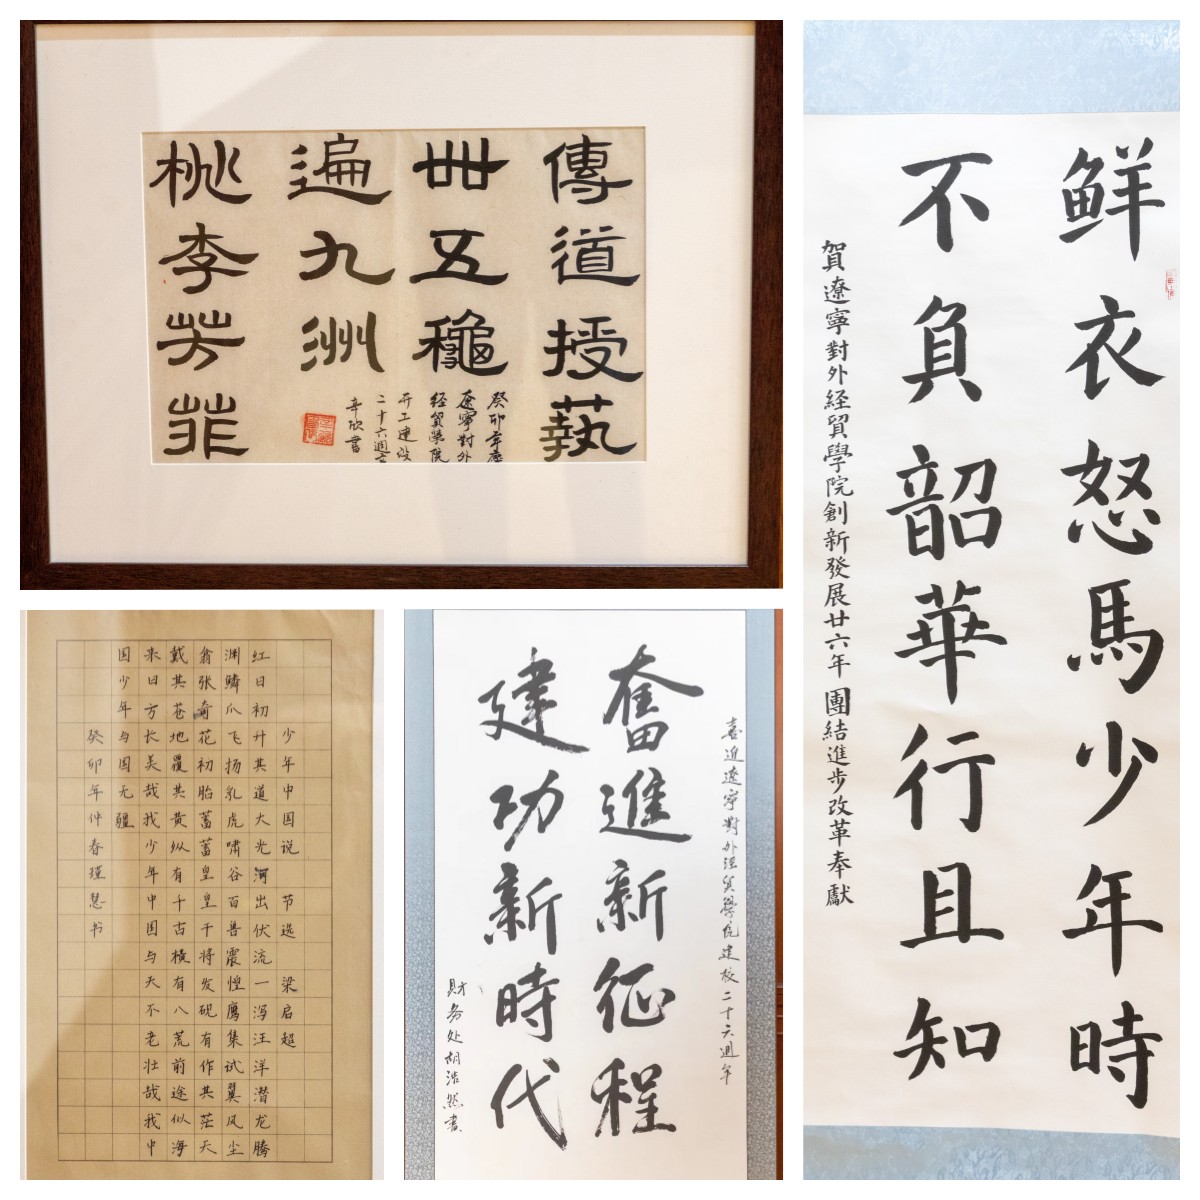 傳道授藝
卅五龝
遍九洲
桃李芳菲
癸卯年慶
遼寧對外
经貿學院
开工建设
二十六週年
辛欣書
鲜衣怒馬少年時
不負韶華行且知
賀遼寧對外経貿學院創新發展廿六年 團結進步改革奉獻
少年中国说 节选 梁启超
红日初升其道大光河出伏流一泻汪洋潜龙腾
渊鳞爪飞扬乳虎啸谷百兽震惶鹰集试翼风尘
翕张奇花初胎蓄蓄皇皇干将发硎有作其茫天
戴其苍地覆其黄纵有千古横有八荒前途似海
来日方长美哉我少年中国与天不老壮哉我中
国少年与国无疆
癸卯年仲春瑾慧书
喜迎遼寧對外经贸學院建校二十六週年
奮進新征程
建功新時代
財务处胡浩然書